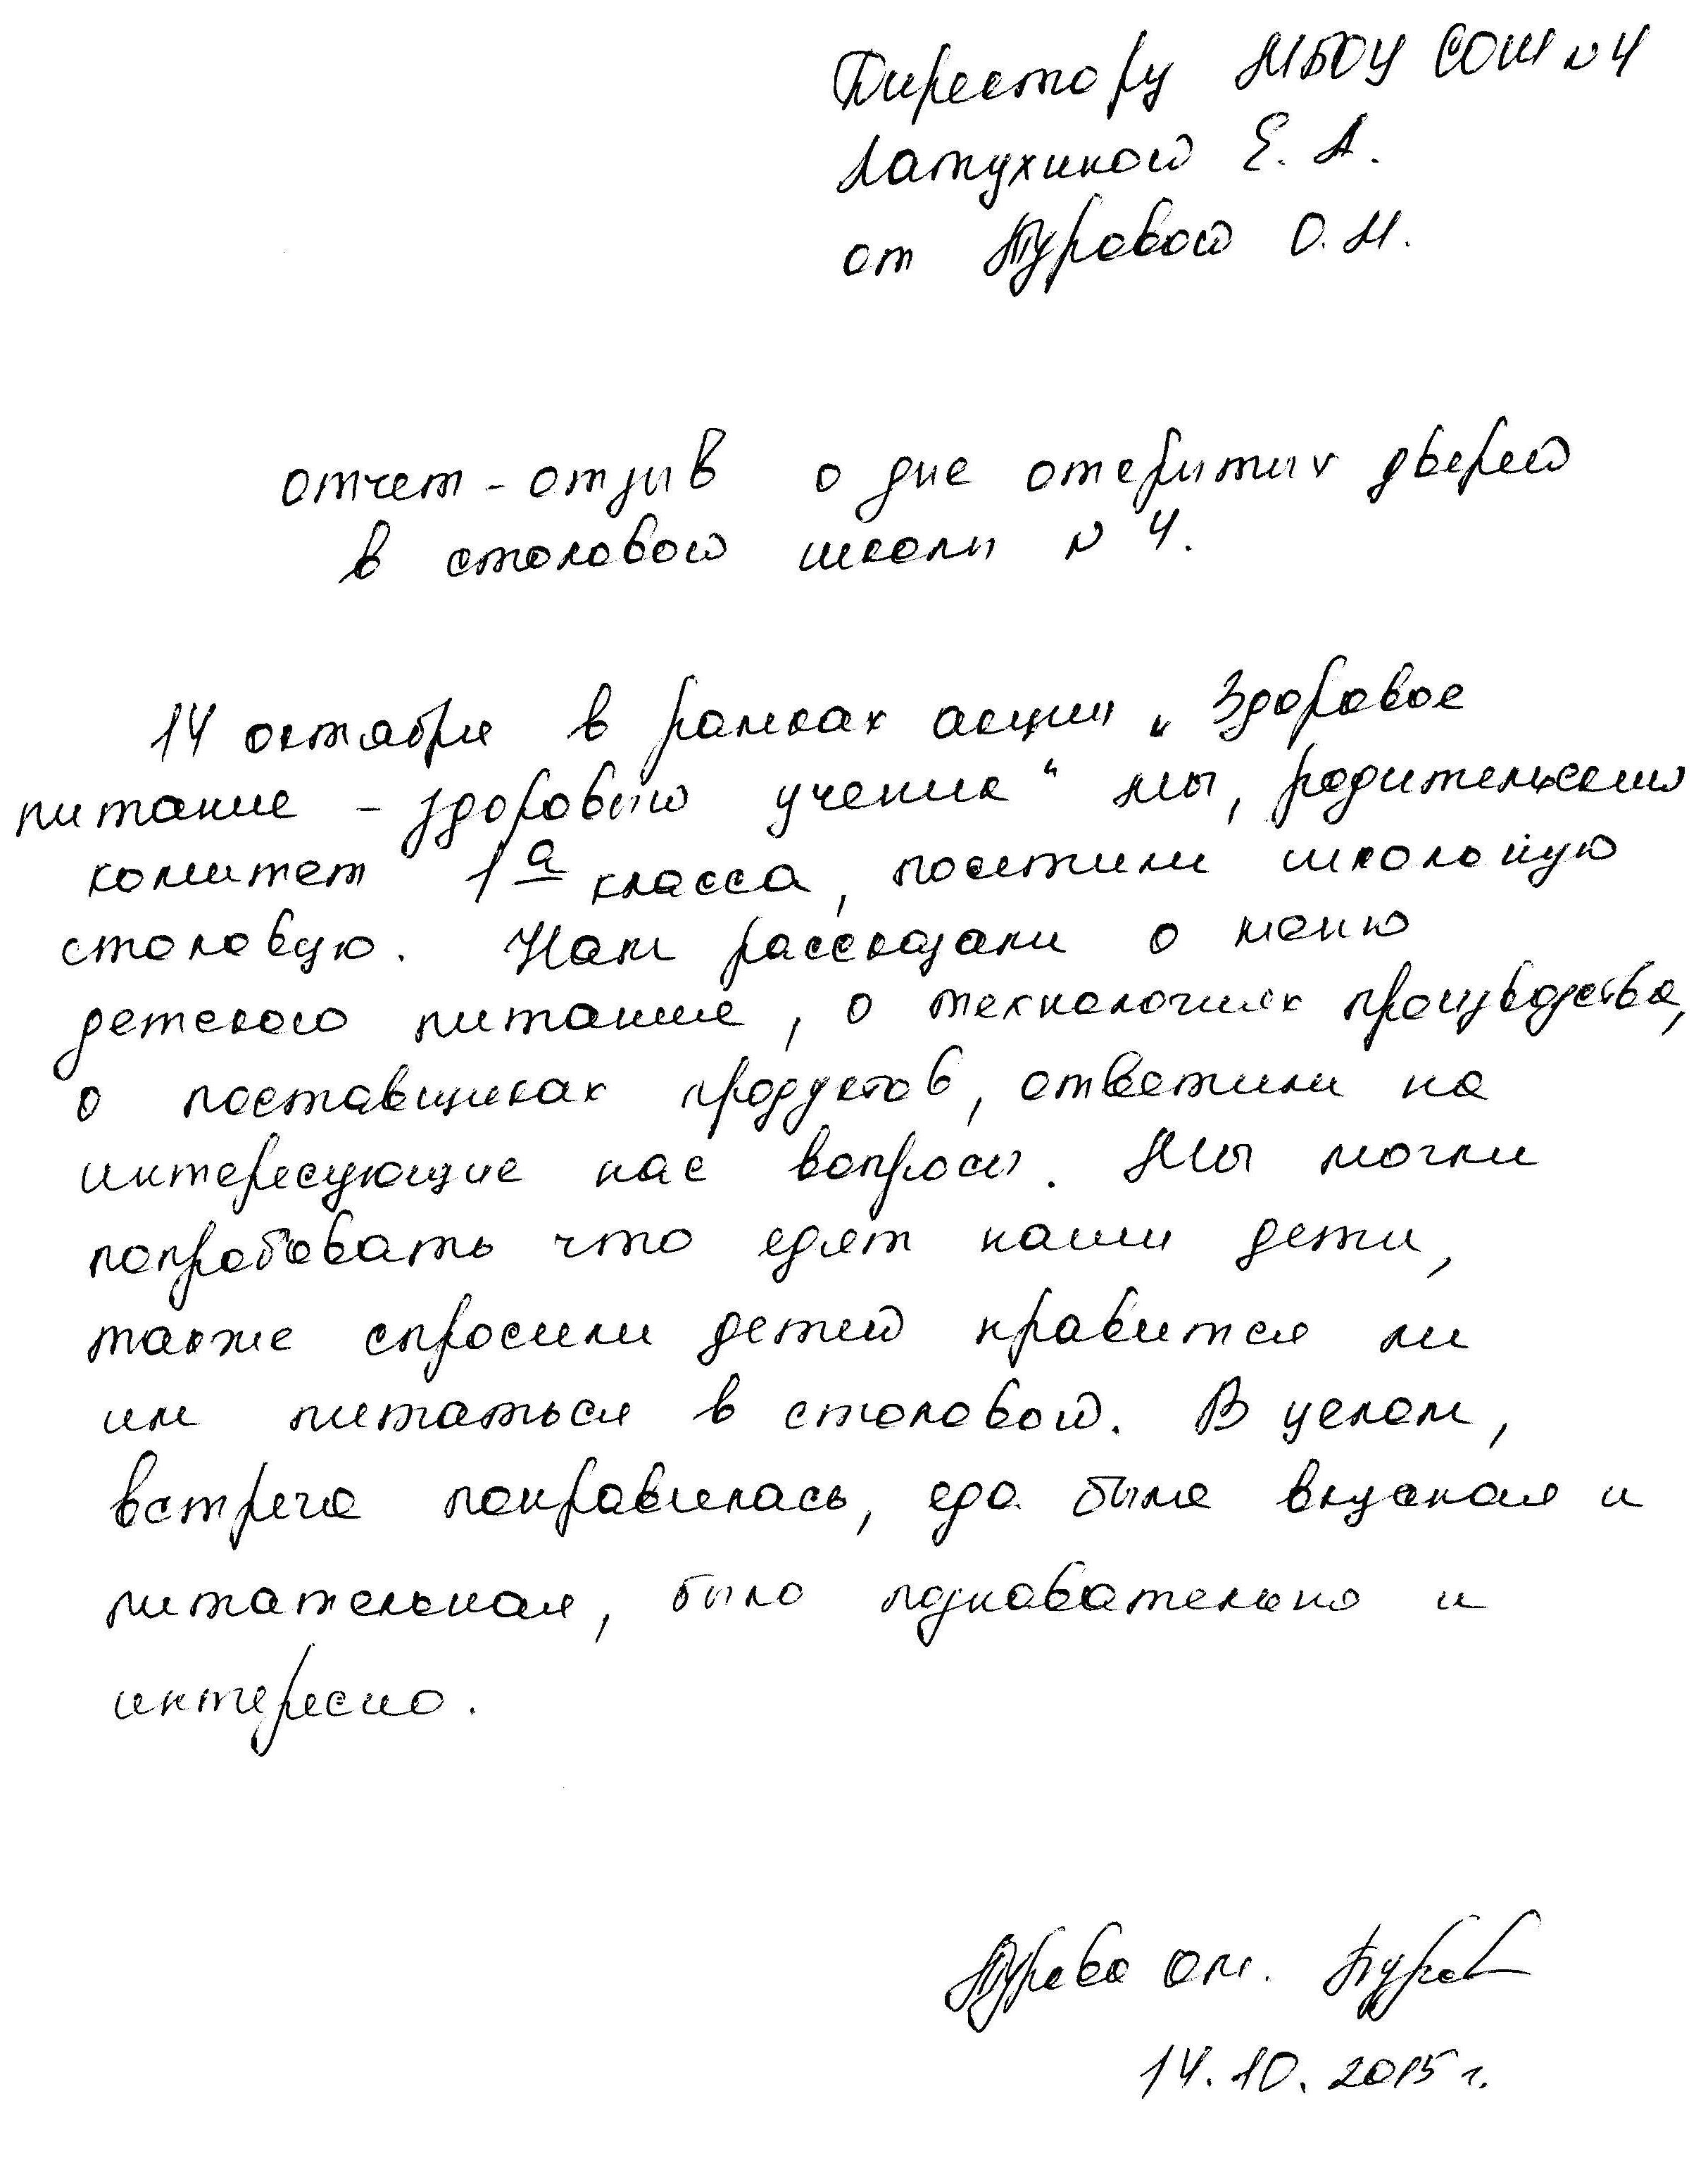 Директору МБОУ СОШ №4
Латухиной Е. А.
от Туровой О. М.
отчет - отзыв о дне открытых дверей
в столовой школы № 4.
14 октября в рамках акции „Здоровое
питание - здоровый ученик“ мы, родительский
комитет 1а класса, посетили школьную
столовую. Нам рассказали о меню
детского питания, о технологиях производства,
о поставщиках продуктов, ответили на
интересующие нас вопросы. Мы могли
попробовать что едят наши дети,
также спросили детей нравится ли
им питаться в столовой. В целом,
встреча понравилась, еда была вкусная и
питательная, было познавательно и
интересно.
Турова О.М. Туров
14.10.2015 г.